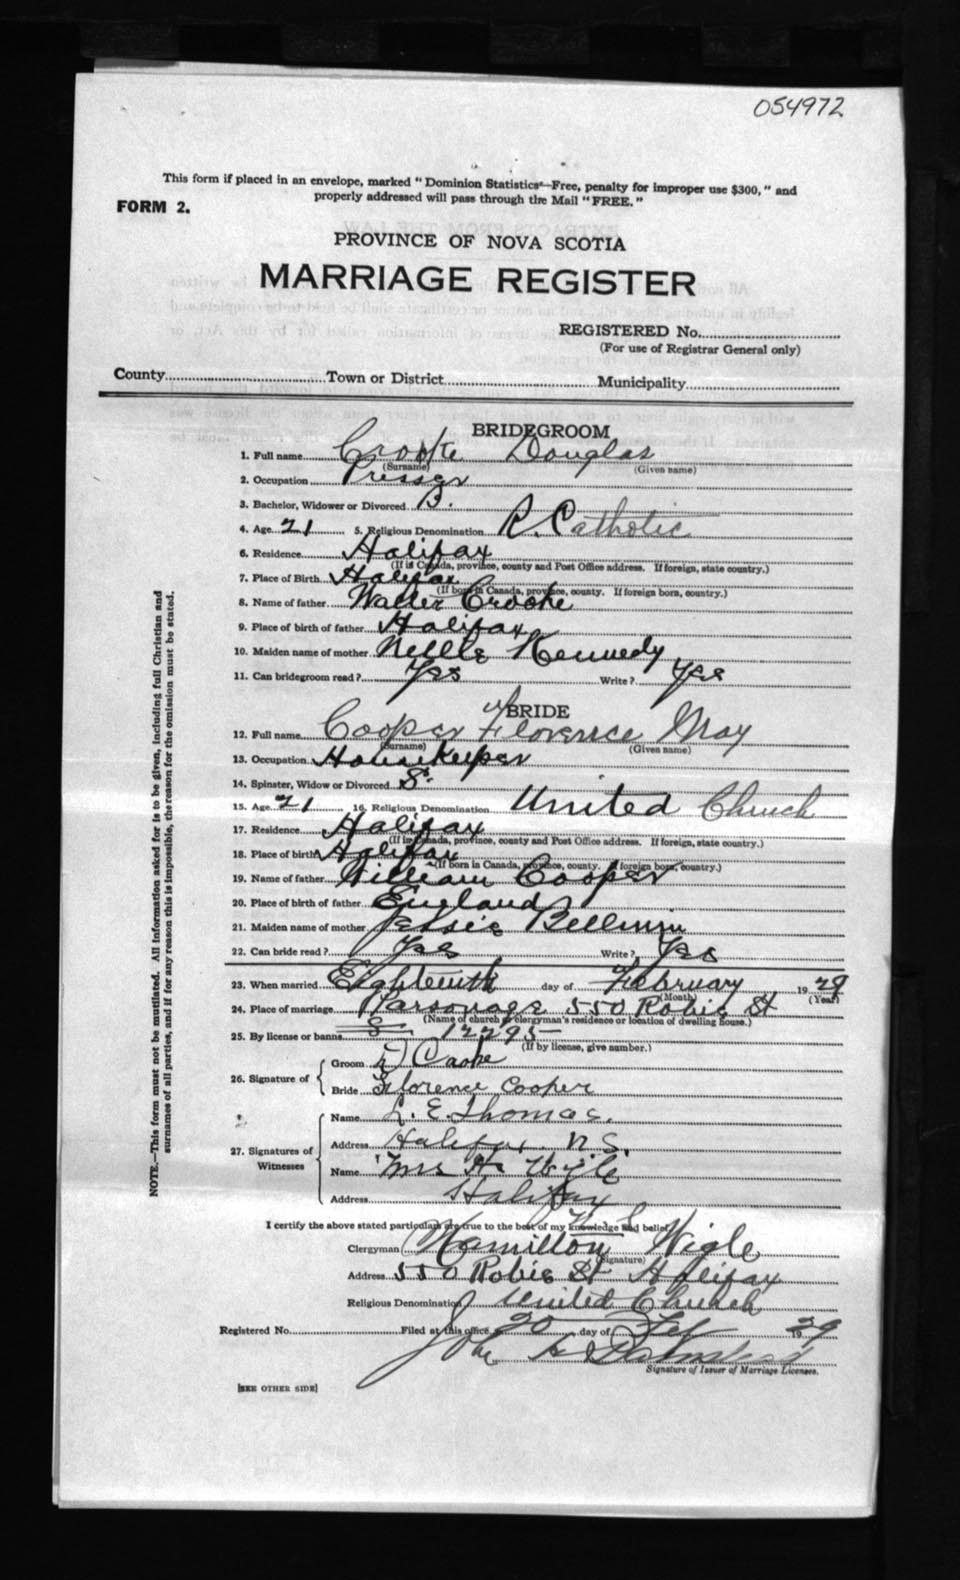 054972
This form if placed in an envelope, marked "Dominion Statistics—Free, penalty for improper use $300," and
properly addressed will pass through the Mail "FREE."
FORM 2.
PROVINCE OF NOVA SCOTIA
MARRIAGE REGISTER
REGISTERED No.
(For use of Registrar General only)
County Town or District Municipality
BRIDEGROOM
1. Full name Crooke Douglas
(Surname) (Given name)
2. Occupation Presser
3. Bachelor, Widower or Divorced B.
4. Age 21 5. Religious Denomination R. Catholic
6. Residence Halifax
(If in Canada, province, county and Post Office address. If foreign, state country.)
7. Place of Birth Halifax
(If born in Canada, province, county. If foreign born, country.)
8. Name of father Walter Crooke
9. Place of birth of father Halifax
10. Maiden name of mother Nellie Kennedy
11. Can bridegroom read? Yes Write? Yes
BRIDE
12. Full name Cooper Florence May
(Surname) (Given name)
13. Occupation Housekeeper
14. Spinster, Widow or Divorced S.
15. Age 21 16. Religious Denomination United Church
17. Residence Halifax
(If in Canada, province, county and Post Office address. If foreign, state country.)
18. Place of birth Halifax
(If born in Canada, province, county. If foreign born, country.)
19. Name of father William Cooper
20. Place of birth of father England
21. Maiden name of mother Jessie
22. Can bride read? Yes Write? Yes
23. When married Eighteenth day of February 19 29
(Month) (Year)
24. Place of marriage Parsonage 550 Robie St
(Name of church or clergyman's residence or location of dwelling house.)
25. By license or banns 12295
(If by license, give number.)
26. Signature of
Groom D Crooke
Bride Florence Cooper
27. Signatures of Witnesses
Name L. E. Thomas.
Address Halifax N.S.
Name Mrs H. Wigle
Address Halifax
I certify the above stated particulars are true to the best of my knowledge and belief.
Clergyman Hamilton Wigle
(Signature)
Address 550 Robie St Halifax
Religious Denomination United Church
Registered No. Filed at this office 20 day of Feb 19 29
John A
Signature of Issuer of Marriage Licenses.
[SEE OTHER SIDE]
NOTE.—This form must not be mutilated. All information asked for is to be given, including full Christian and
surnames of all parties, and if for any reason this is impossible, the reason for the omission must be stated.